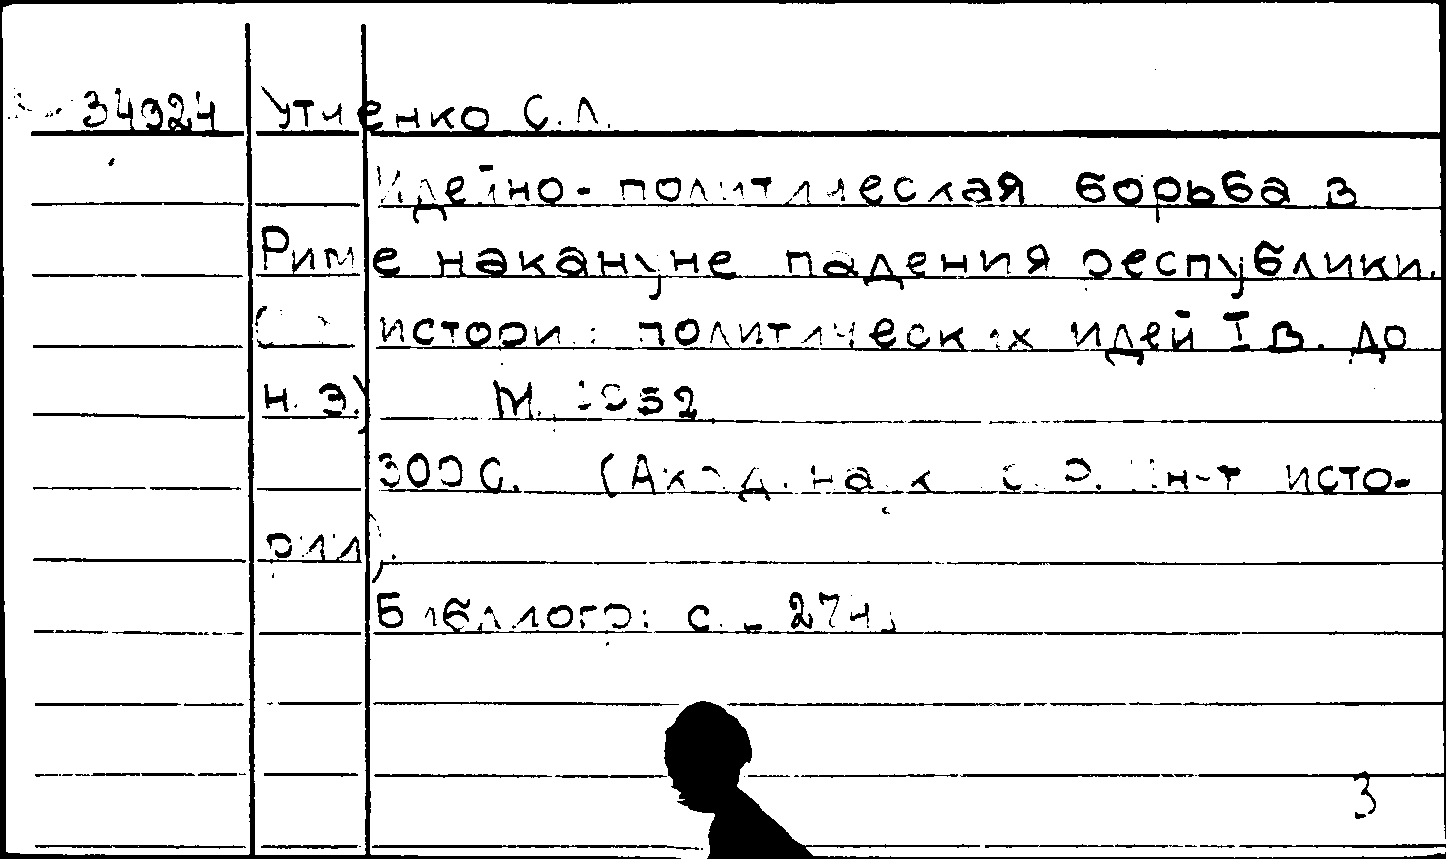 34924 Утченко С.Л.
Идейно-политическая борьба в
Риме накануне падения республики.
(Из истории политических идей I в. до
н.э.) М. 1952
300 с. (Акад. наук С.С.Р. Ин-т исто-
рии).
Библиогр: с. - 274
3